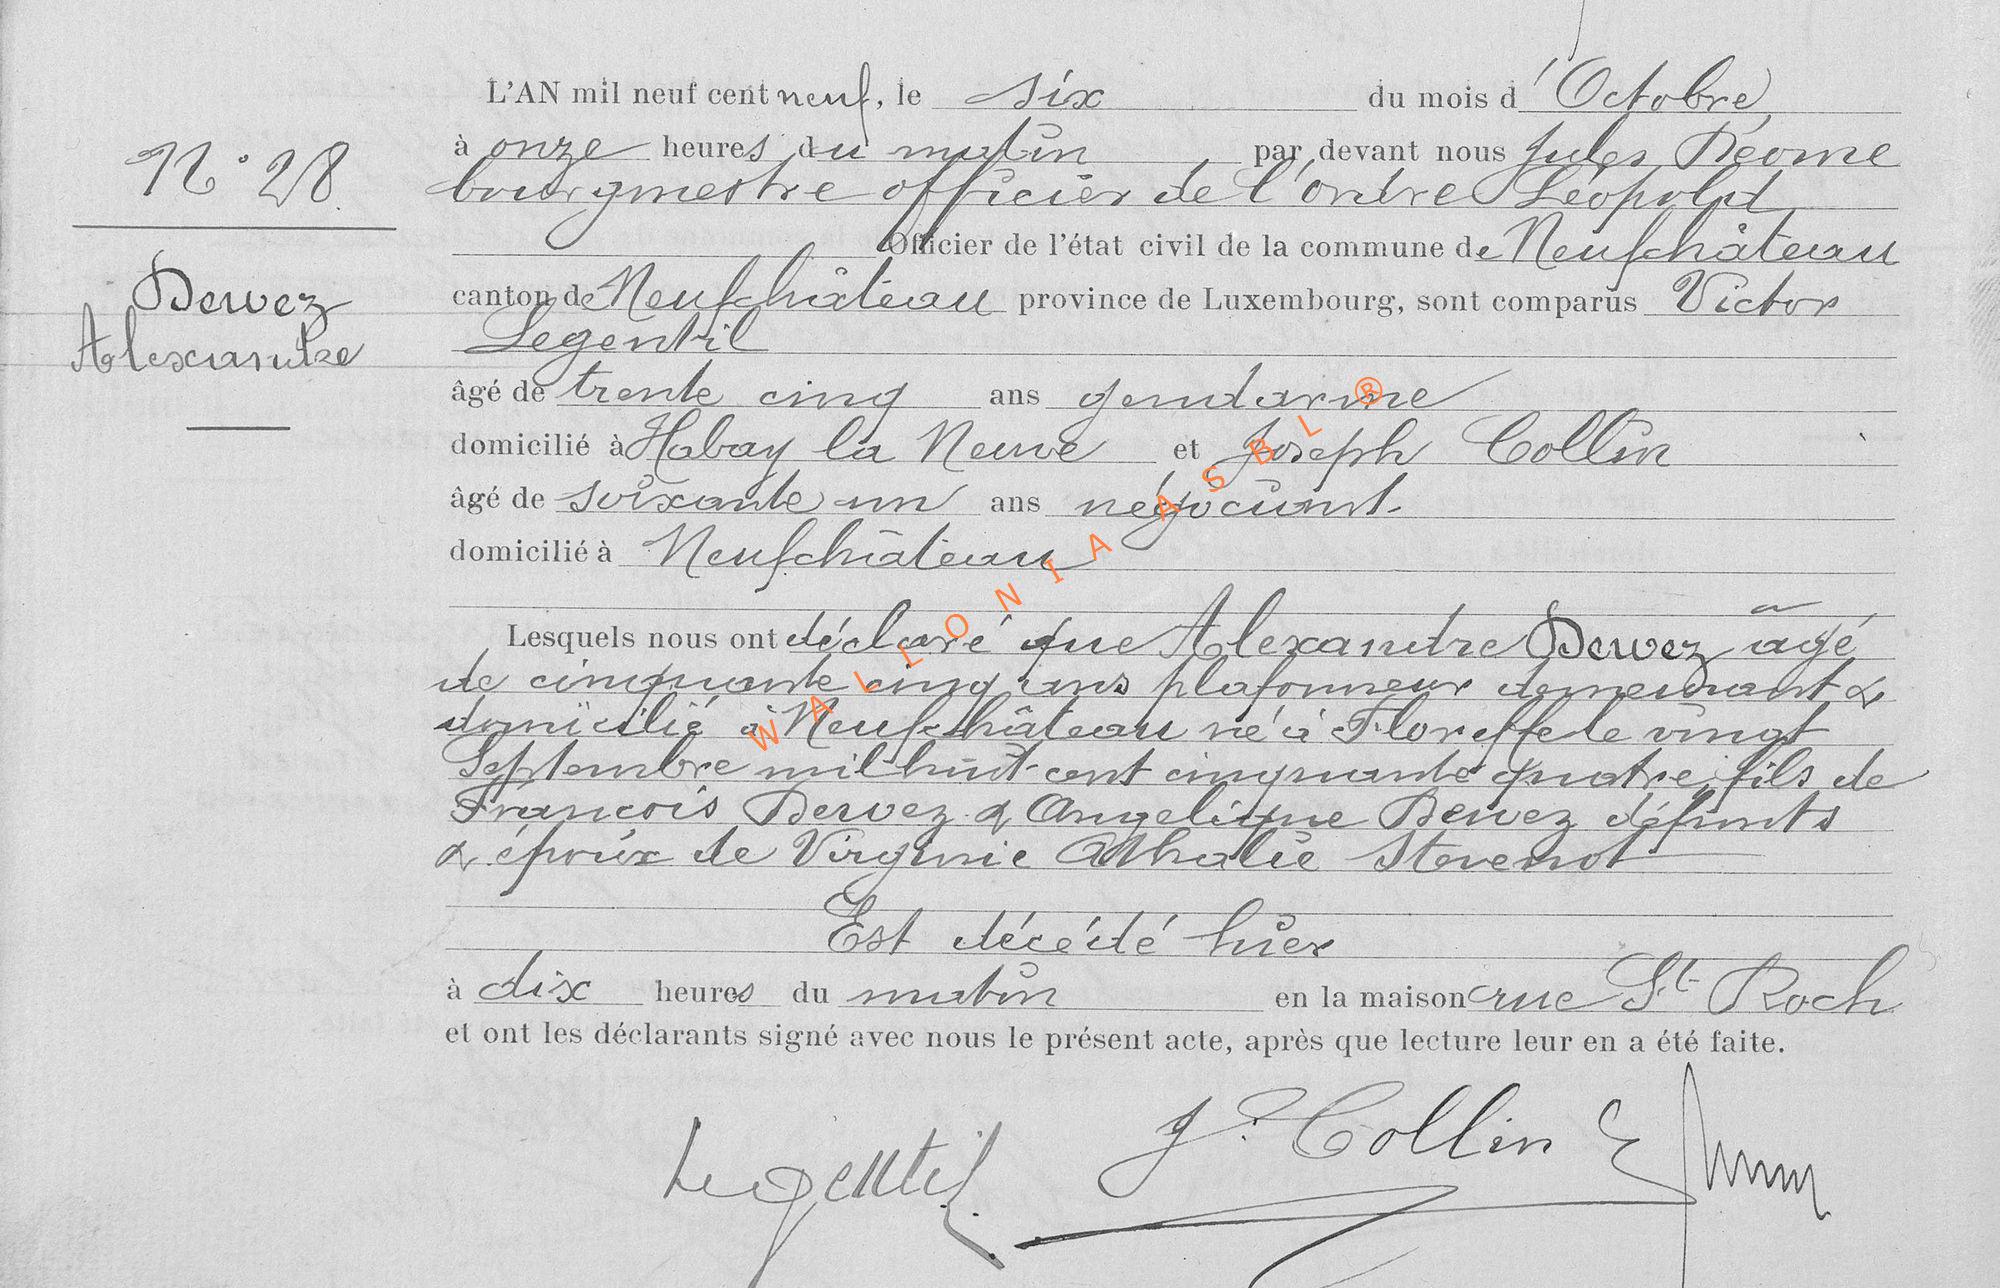 N° 28
Dewez
Alexandre
L'AN mil neuf cent neuf, le six du mois d'Octobre
à onze heures du matin par devant nous Jules
bourgmestre officier de l'ordre Léopold
Officier de l'état civil de la commune de Neufchâteau
canton de Neufchâteau province de Luxembourg, sont comparus Victor
Legentil
âgé de trente cinq ans gendarme
domicilié à Habay la Neuve et Joseph Collin
âgé de soixante un ans négociant
domicilié à Neufchâteau
Lesquels nous ont déclaré que Alexandre Dewez âgé
de cinquante cinq ans plafonneur demeurant &
domicilié à Neufchâteau né à Floreffe le vingt
Septembre mil huit cent cinquante quatre, fils de
François Dewez & Angelique Dewez défunts
& époux de Virginie Athalie Stevenot
Est décédé hier
à dix heures du matin en la maison rue St Roch
et ont les déclarants signé avec nous le présent acte, après que lecture leur en a été faite.
Legentil
J. Collin
WALLONIA ASBL ®